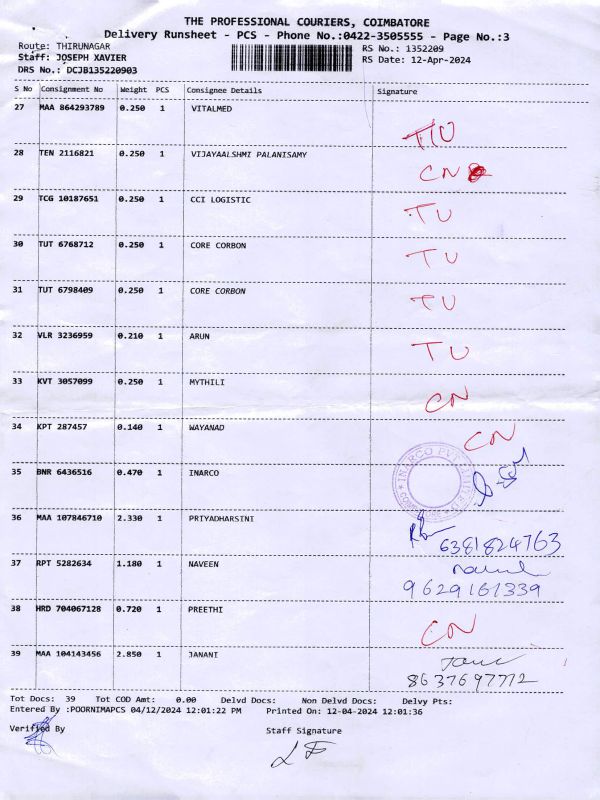 THE PROFESSIONAL COURIERS, COIMBATORE
Delivery Runsheet - PCS - Phone No.:0422-3505555 - Page No.:3
Route: THIRUNAGAR RS No.: 1352209
Staff: JOSEPH XAVIER RS Date: 12-Apr-2024
DRS No.: DCJB135220903
S No Consignment No Weight PCS Consignee Details Signature
27 MAA 864293789 0.250 1 VITALMED
TU
28 TEN 2116821 0.250 1 VIJAYAALSHMI PALANISAMY
CN
29 TCG 10187651 0.250 1 CCI LOGISTIC
TU
30 TUT 6768712 0.250 1 CORE CORBON
TU
31 TUT 6798409 0.250 1 CORE CORBON
TU
32 VLR 3236959 0.210 1 ARUN
TU
33 KVT 3057099 0.250 1 MYTHILI
CN
34 KPT 287457 0.140 1 WAYANAD
CN
35 BNR 6436516 0.470 1 INARCO
INARCO PVT
36 MAA 107846710 2.330 1 PRIYADHARSINI
6381824763
37 RPT 5282634 1.180 1 NAVEEN
9629161339
38 HRD 704067128 0.720 1 PREETHI
CN
39 MAA 104143456 2.850 1 JANANI
8637697772
Tot Docs: 39 Tot COD Amt: 0.00 Delvd Docs: Non Delvd Docs: Delvy Pts:
Entered By :POORNIMAPCS 04/12/2024 12:01:22 PM Printed On: 12-04-2024 12:01:36
Verified By Staff Signature